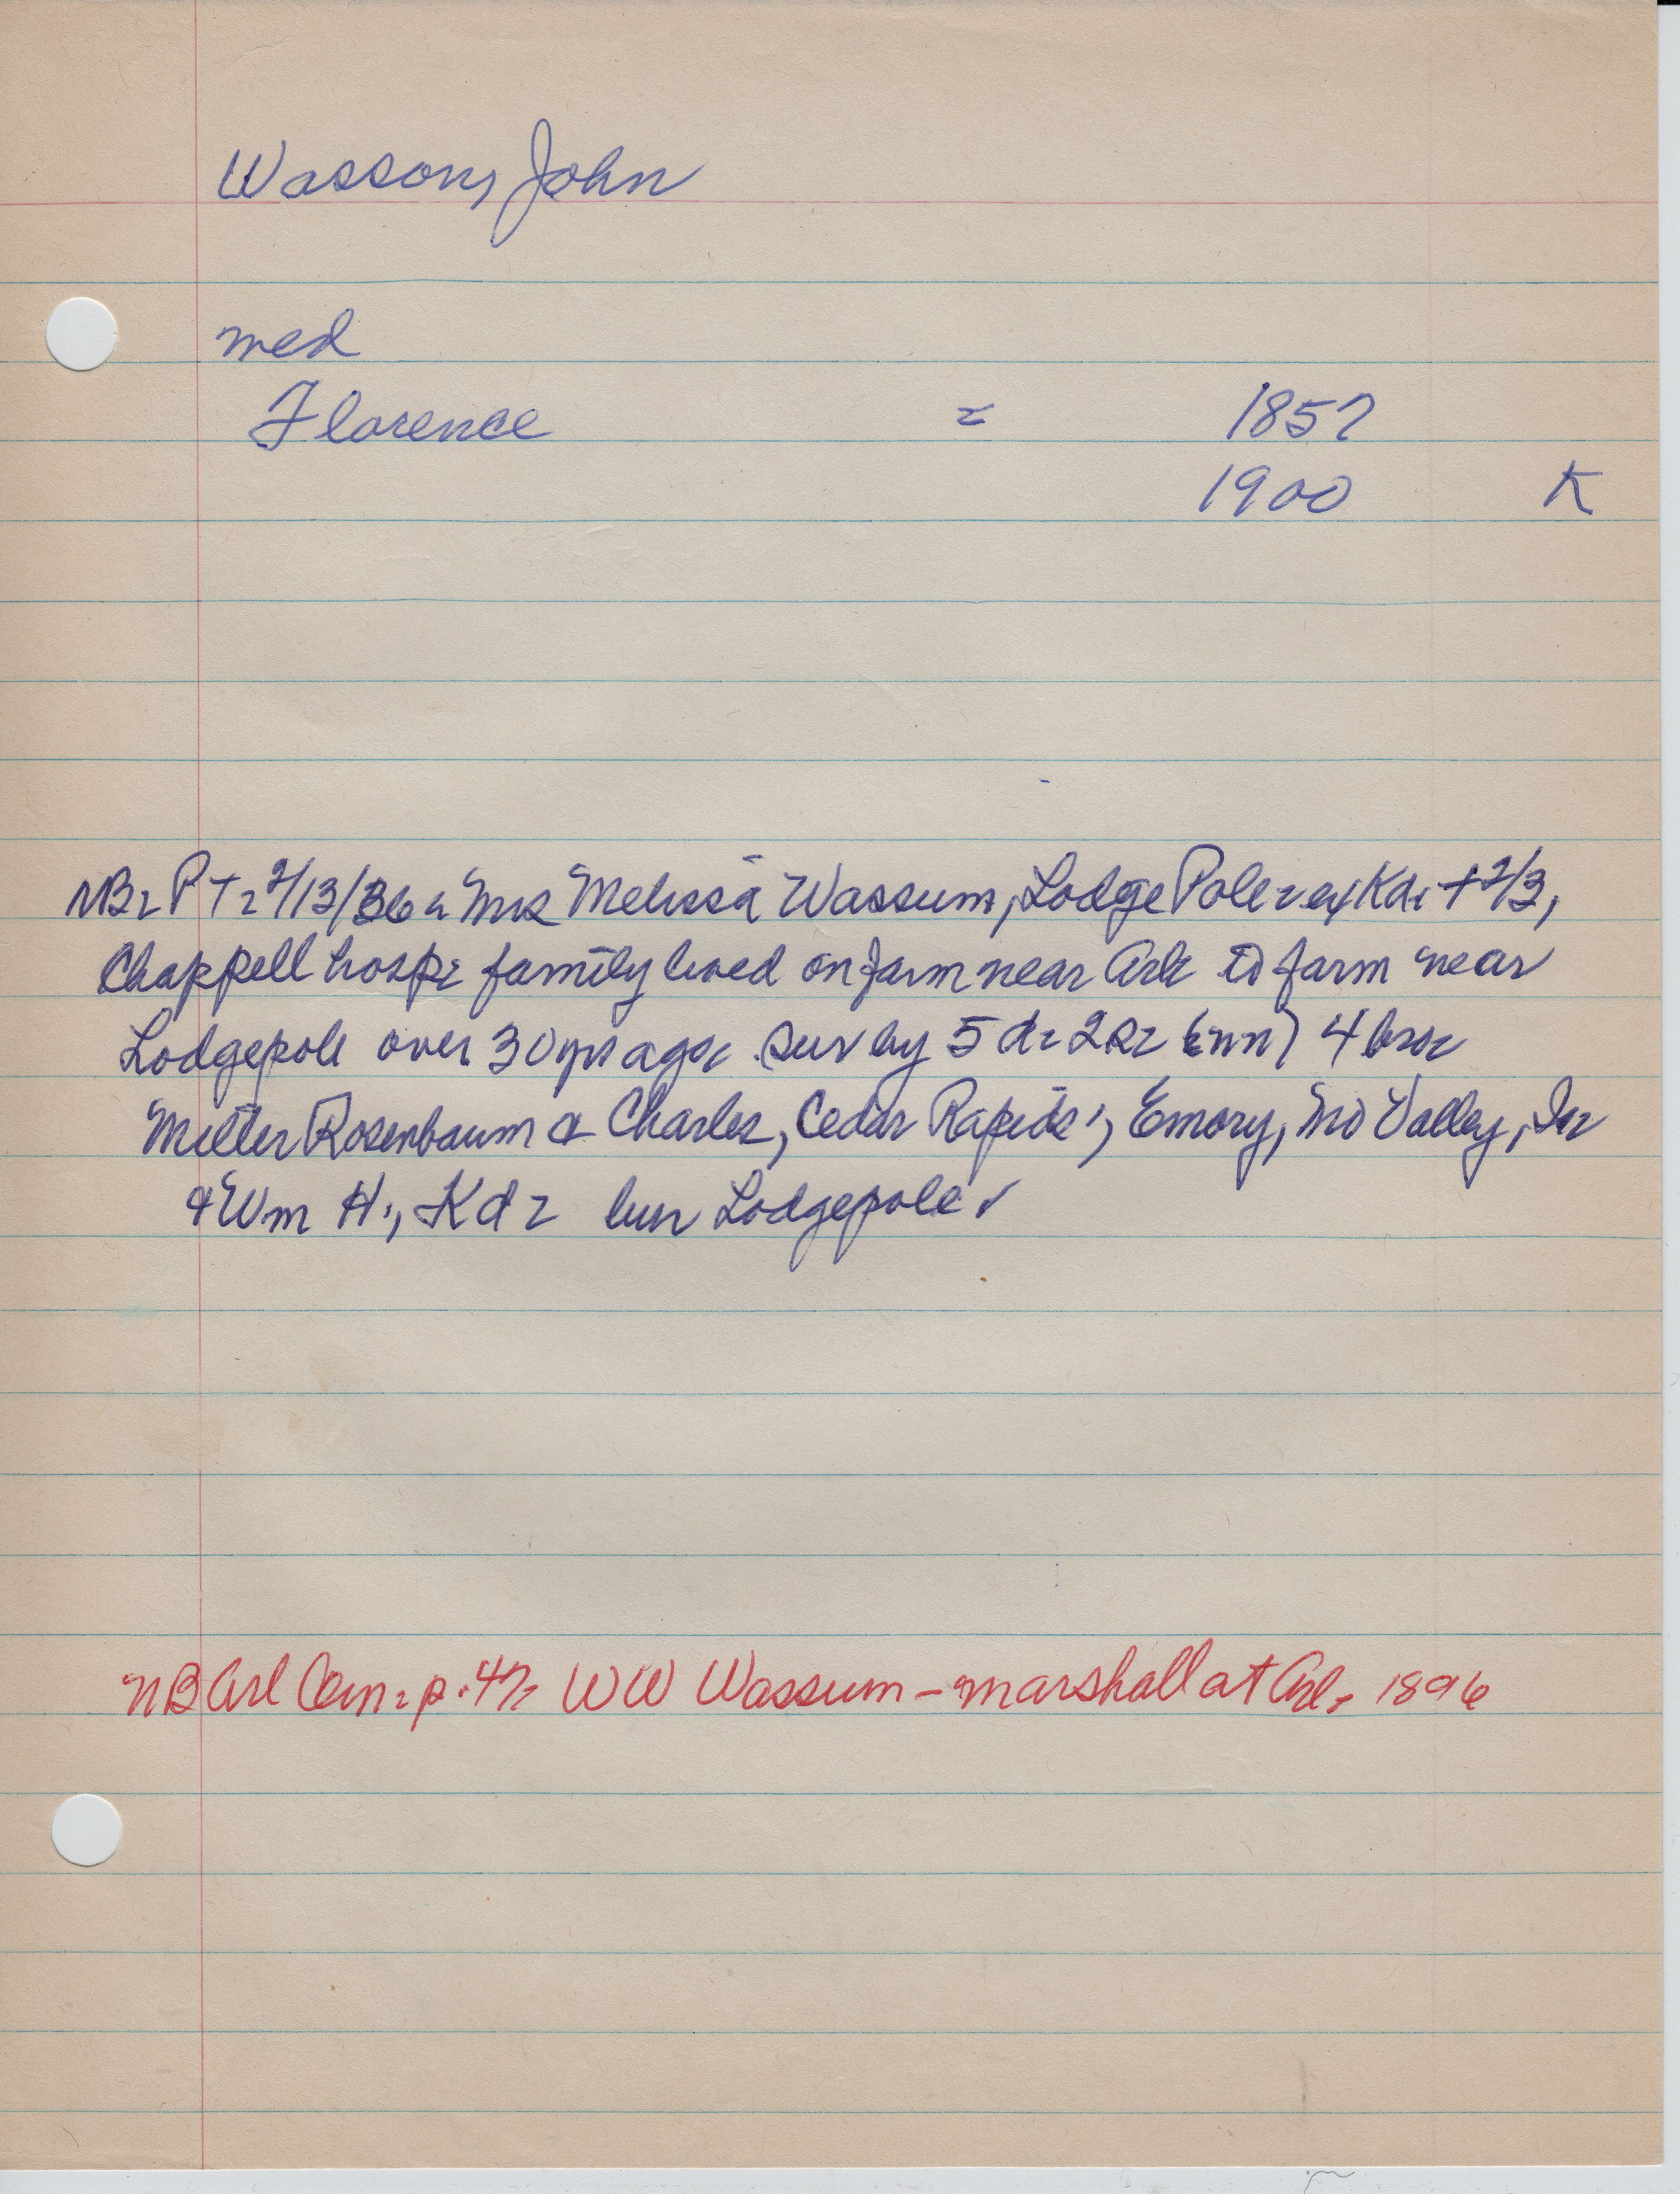 Wasson, John
med
Florence = 1857
1900 K
NB- PT- 2/13/36- Mrs Melissa Wassum, Lodge Pole- ex Kd. + 2/3,
Chappell hosp- family lived on farm near Arl- to farm near
Lodgepole over 30 yrs ago. Surv by 5 d- 2 s- (nn) 4 bro-
Milter Rosenbaum & Charles, Cedar Rapids; Emory, Mo Valley, Ia-
& Wm H., Kd- bur Lodgepole.
NB Arl Cem- p. 47- WW Wassum - marshall at Arl- 1896